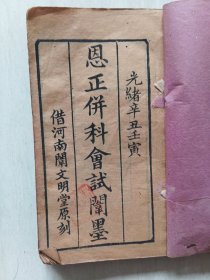 光緒辛丑壬寅
恩正併科會試闈墨
借河南闈文明堂原刻